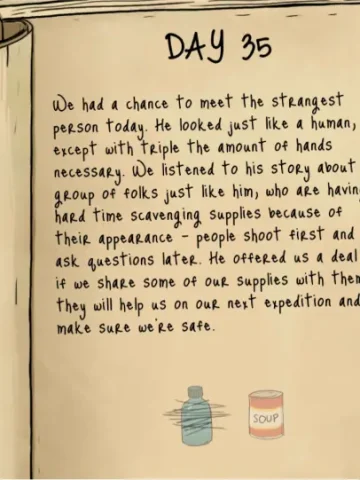 DAY 35
We had a chance to meet the strangest
person today. He looked just like a human,
except with triple the amount of hands
necessary. We listened to his story about
group of folks just like him, who are havin
hard time scavenging supplies because of
their appearance - people shoot first and
ask questions later. He offered us a deal
if we share some of our supplies with them
they will help us on our next expedition and
make sure we're safe.
SOUP